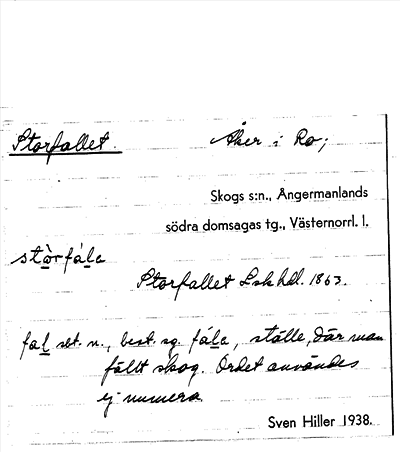 Storfallet. Åker i Ro;
Skogs s:n., Ångermanlands
södra domsagas tg., Västernorrl. l.
stòrfála
Storfallet Lskhdl. 1863.
fal sbt. n., best. sg. fála, ställe, där man
fällt skog. Ordet användes
ej numera.
Sven Hiller 1938.